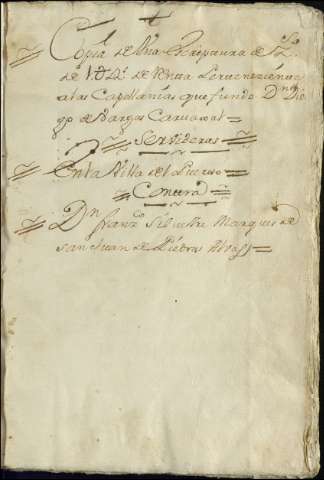 Copia de Una Scriptura de
de Renta Perteneziente
a las Capellanías que fundó Dn Die
go de Vargas Carvajal
Servideras
En la Villa de el Puerto
Contra
Dn Franco Silvestre Marques de
San Juan de Piedras Albas